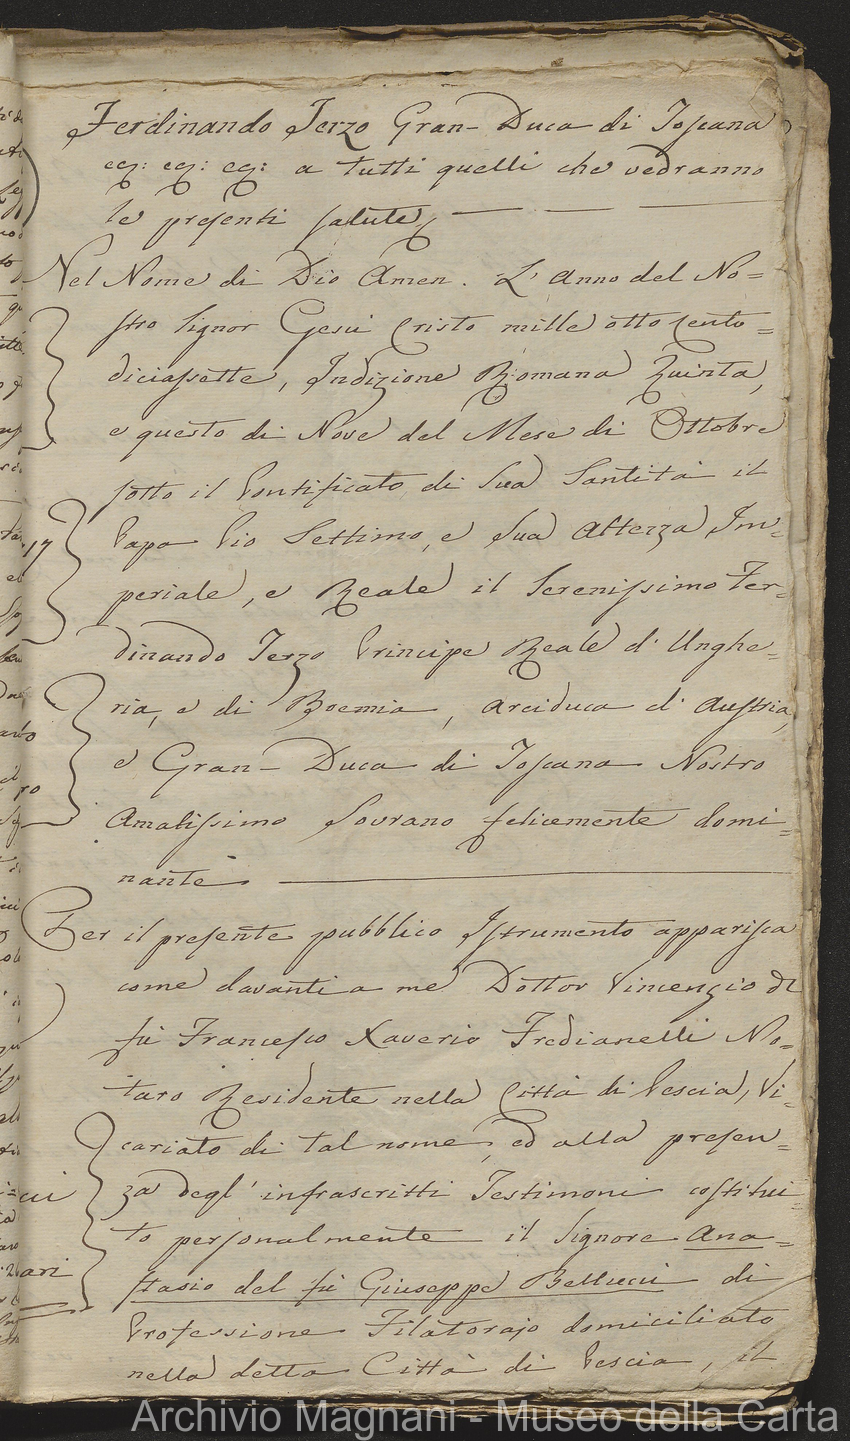 Ferdinando Terzo Gran-Duca di Toscana
ec: ec: ec: a tutti quelli che vedranno
le presenti salute
Nel Nome di Dio Amen. L'Anno del No=
stro Signor Gesù Cristo mille otto cento=
diciassette, Indizione Romana Quinta,
e questo dì Nove del Mese di Ottobre
sotto il Pontificato di Sua Santità il
Papa Pio Settimo, e Sua Altezza Im=
periale, e Reale il Serenissimo Fer=
dinando Terzo Principe Reale d'Unghe=
ria, e di Boemia, Arciduca d'Austria,
e Gran-Duca di Toscana Nostro
Amatissimo Sovrano felicemente domi=
nante.
Per il presente pubblico Istrumento apparisca
come davanti a me Dottor Vincenzio di
fù Francesco Xaverio Fredianelli No=
taro Residente nella Città di Pescia, Vi=
cariato di tal nome, ed alla presen=
za degl'infrascritti Testimoni costitui=
to personalmente il Signore Ana=
stasio del fù Giuseppe Bellucci di
Professione Filatorajo domiciliato
nella detta Città di Pescia, il
17
Archivio Magnani - Museo della Carta